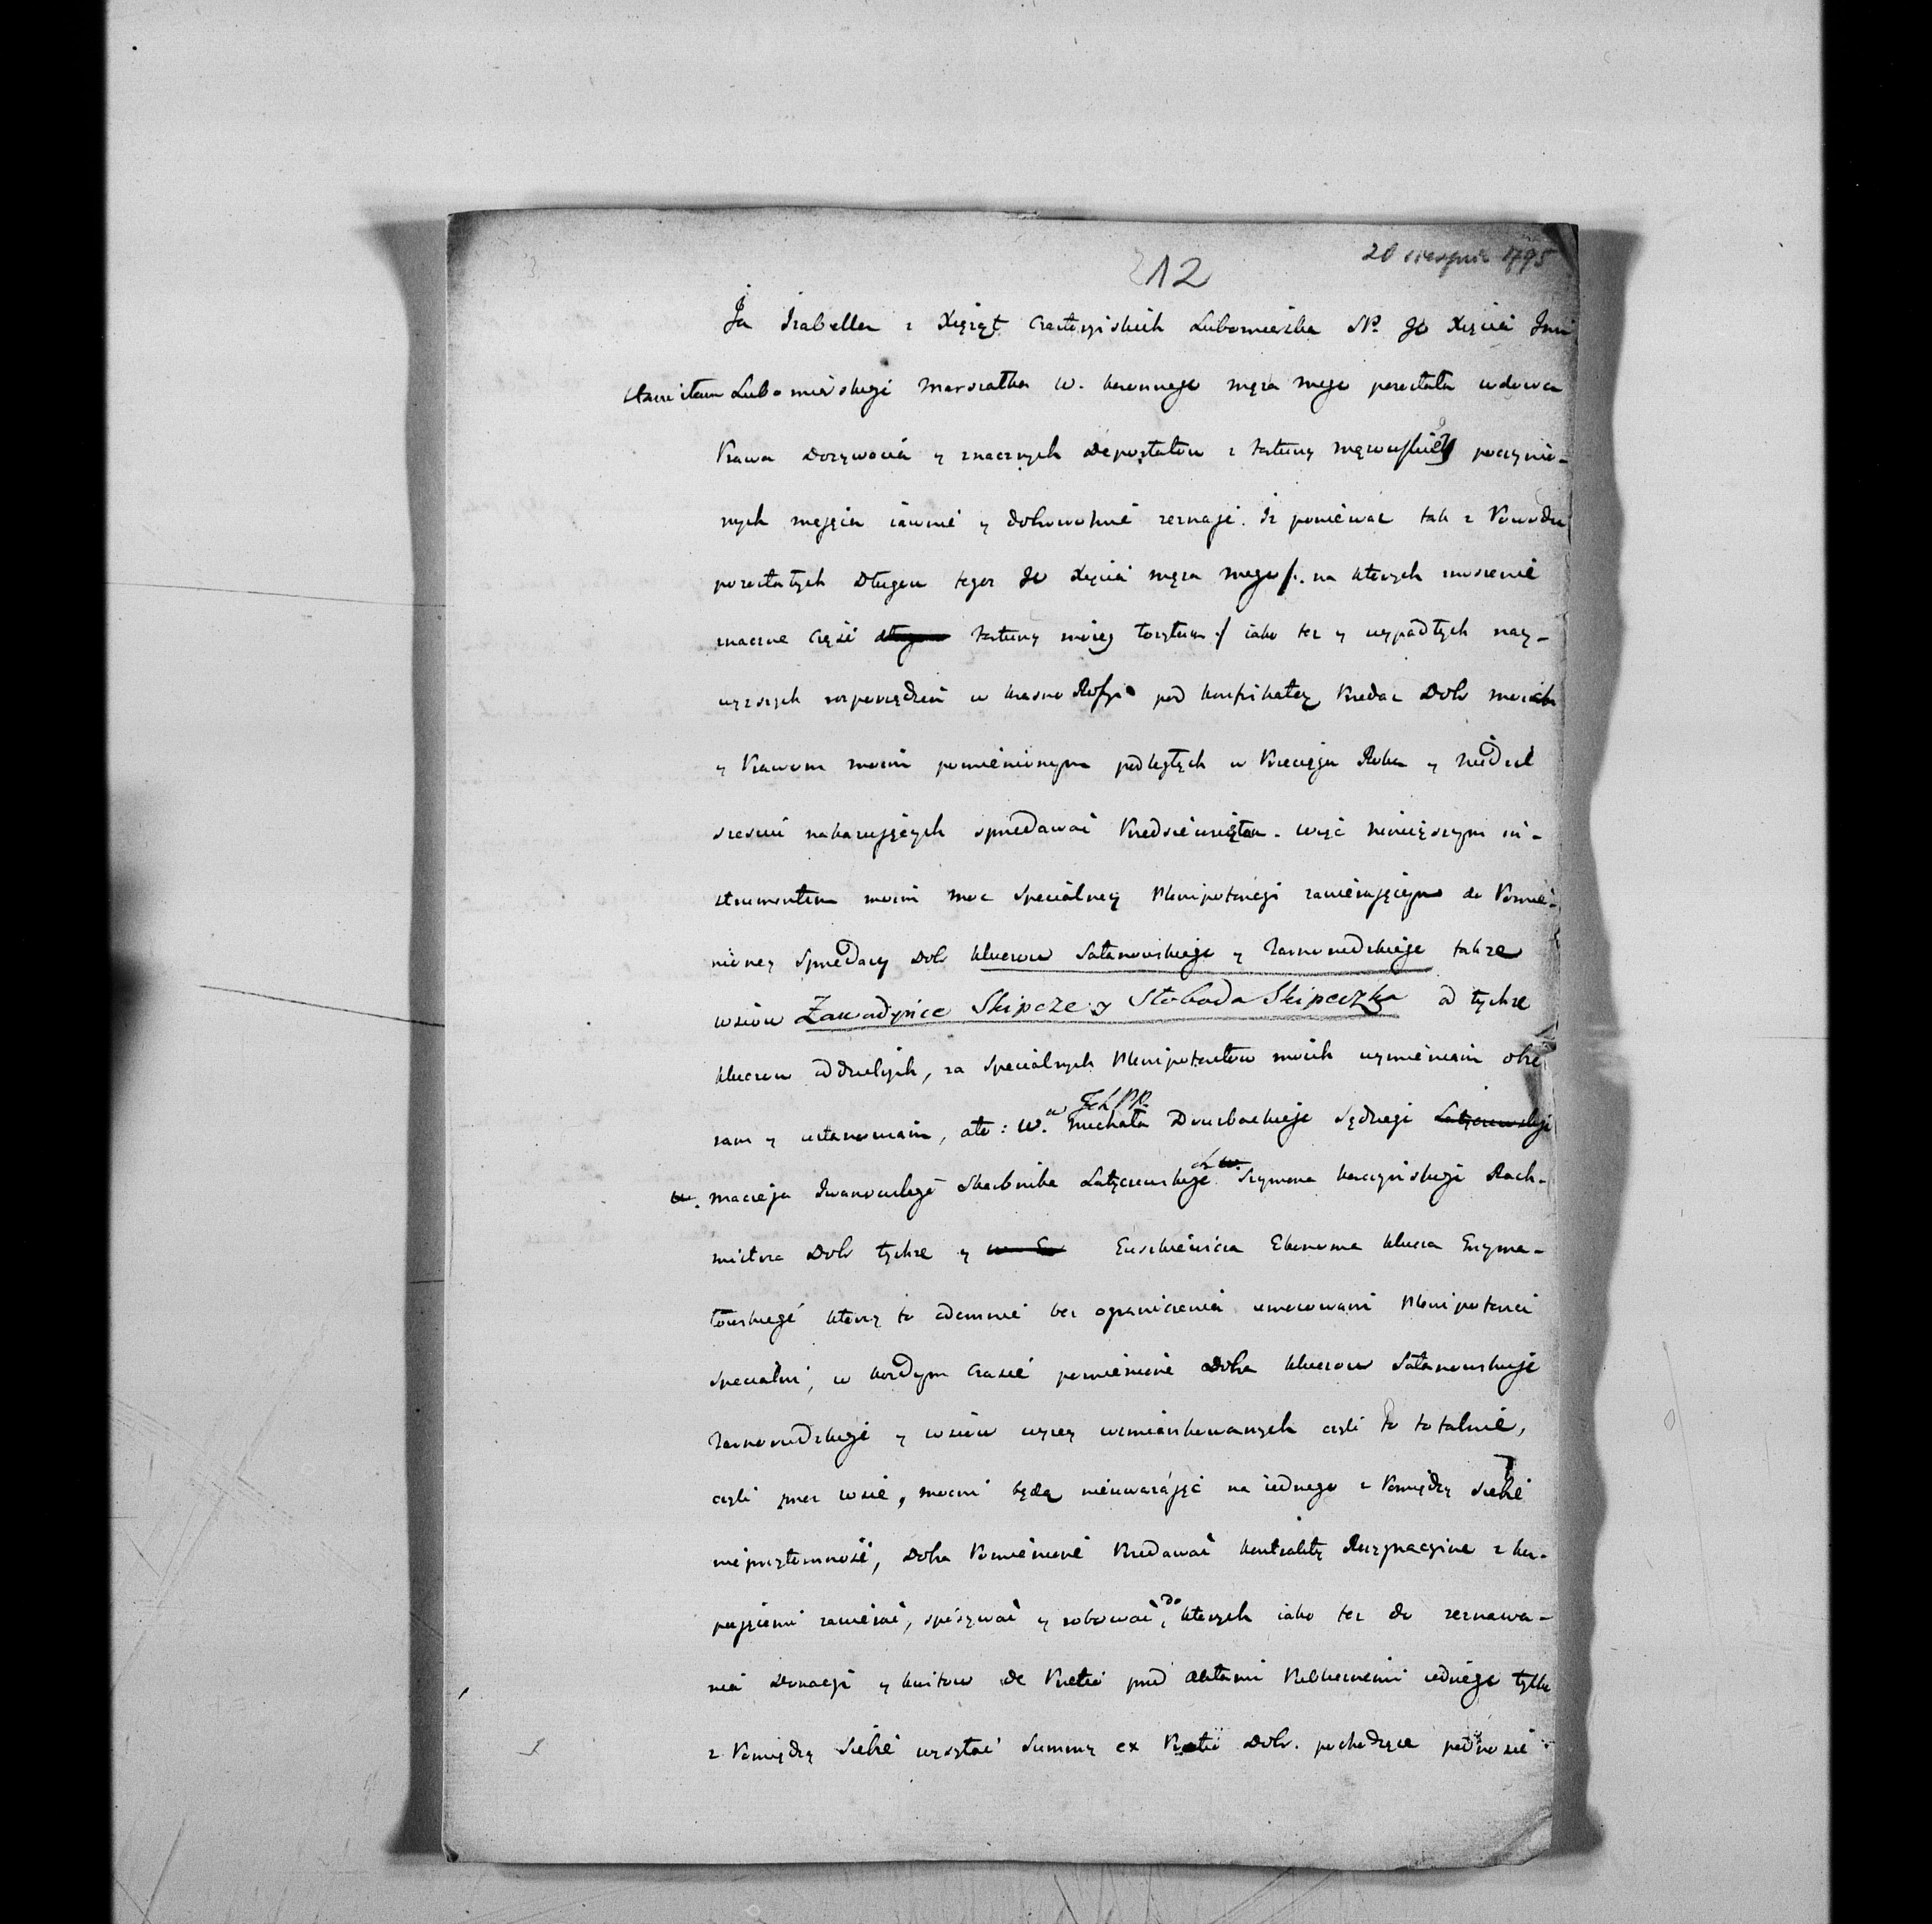 20 sierpnia 1795
12
Ja Izabella z Xiążąt Czartoryiskich Lubomirska SP. JO Xięcia Jmci
Stanisława Lubomirskiego Marszałka W. koronnego męża mego pozostała wdowa
Prawa Dożywocia y znacznych Depositatow z fortuny mężowskiey poczynio-
nych maiąca iawnie y dobrowolnie zeznaję. Iż poniewaz tak z Powodu
pozostałych Długow tegoz JO Xięcia męża mego /. na ktorych znoszenie
znaczne Część fortuny moiey łożyłam ./ iako tez y wypadłych nay-
wyzszych rozporządzen w kraiu Rossyi pod konfiskatą Przedaz Dobr moich
y Prawom moim pomienionym podległych w Przeciągu Roku y niedziel
szesciu nakazuiących sprzedawać Przedsiewziełam. więc ninieyszym in-
strumentem moim moc specialney Plenipotencyi zawieraiącym do Pomie-
nioney Sprzedaży Dobr kluczow Satanowskiego y Tarnorudzkiego takze
wsiow Zawadynce Skipcze y Słoboda Skipeczka od tychze
kluczow oddzielnych, za specialnych Plenipotentow moich wymieniam obie
ram y ustanawiam, oto: W. Ich PP. Michała Drusbackiego Sędziego Latyczewskiego
W. Macieja Iwanowskiego Skarbnika Latyczewskiego Szymona Karczyńskiego Rach-
mistrza Dobr tychze y Euzebiewicza Ekonoma klucza Grzyma-
łowskiego ktorzy to odemnie bez ograniczenia umocowani Plenipotenci
Specialni, w kozdym czasie pomienione Dobra kluczow Satanowskiego
Tarnorudzkiego y wsiow wyzey wzmiankowanych czyli to totalnie,
czyli przez wsie, mocni będą nieuwazając na iednego z Pomiędzy siebie
nieprzytomność, Dobra Pomienione Przedawać kontrakty Rezygnacyine z ku-
puiącemi zawierać, spisywać y roborować, do ktorych iako tez do zeznawa-
nia Donacyi y kwitow de Pretio przed Aktami Publicznemi iednego tylko
z Pomiędzy Siebie wysyłać Summy ex Pretio Dobr. pochodzące podnosić